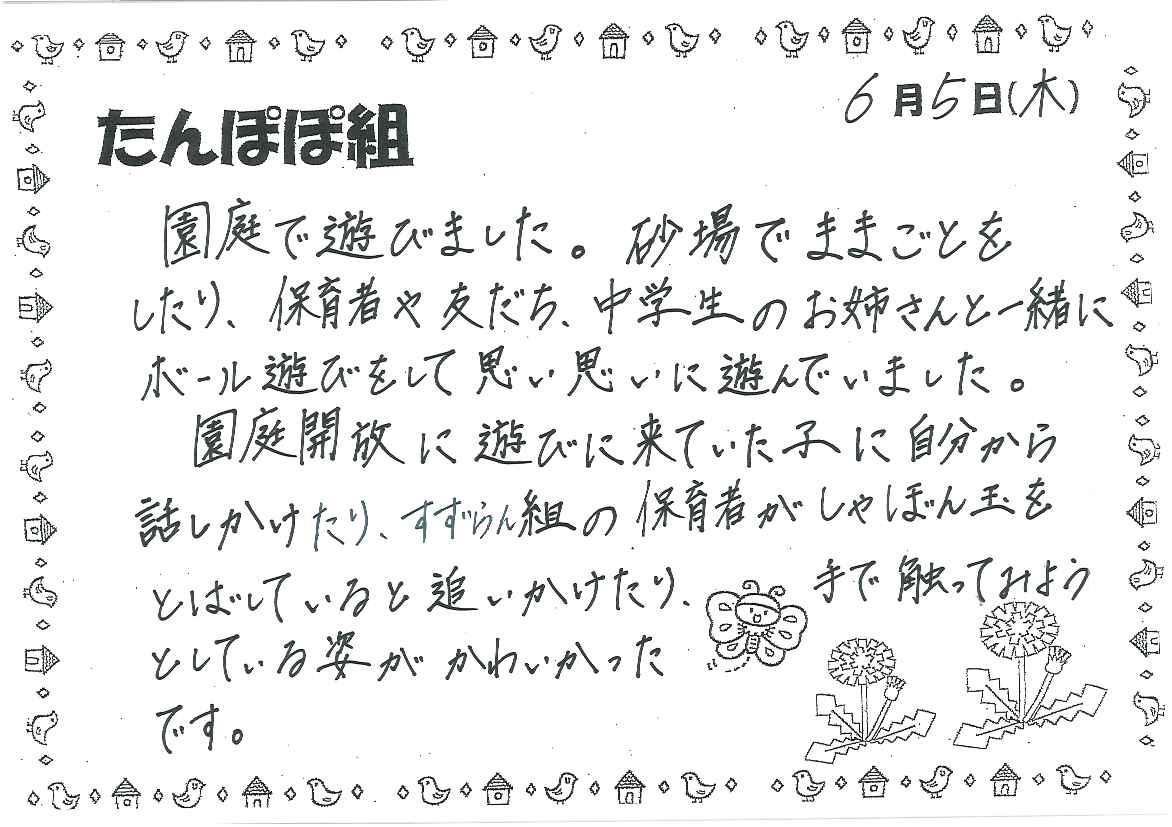 6月5日(木)
たんぽぽ組
園庭で遊びました。砂場でままごとを
したり、保育者や友だち、中学生のお姉さんと一緒に
ボール遊びをして思い思いに遊んでいました。
園庭開放に遊びに来ていた子に自分から
話しかけたり、すずらん組の保育者がしゃぼん玉を
とばしていると追いかけたり、手で触ってみよう
としている姿がかわいかった
です。